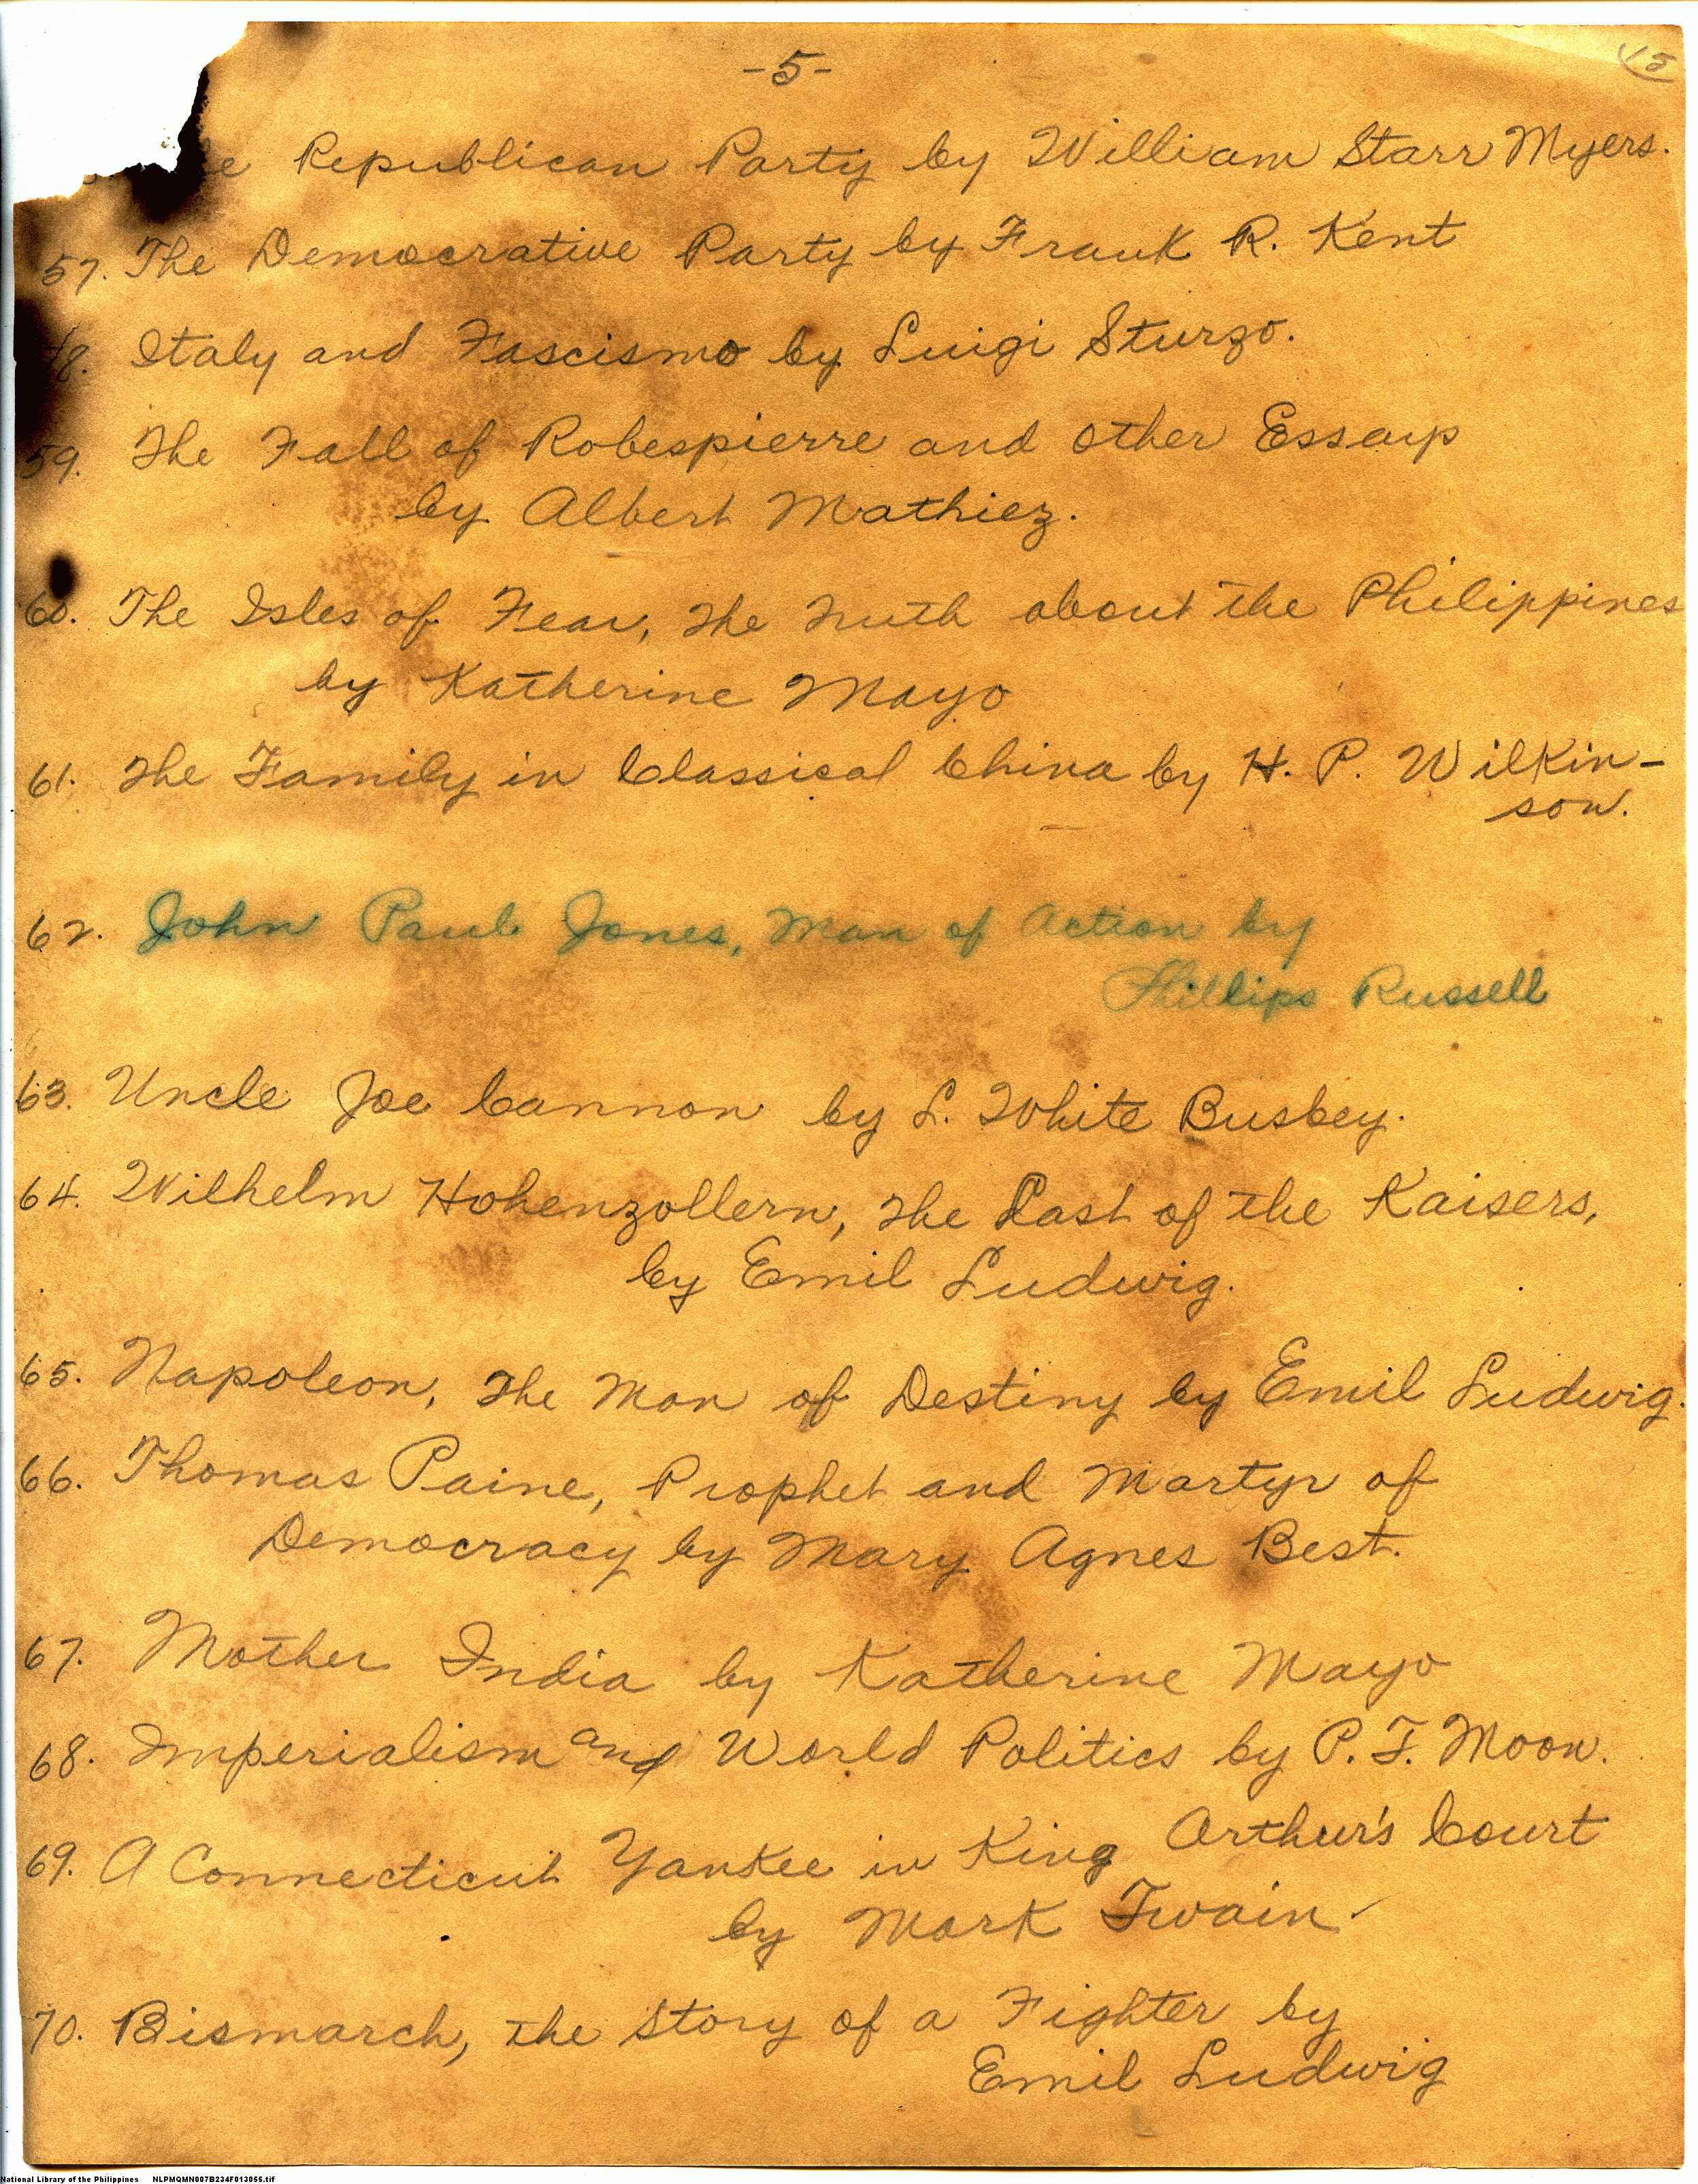 -5-
15
e Republican Party by William Starr Myers.
57. The Democrative Party by Frank R. Kent
8. Italy and Fascismo by Luigi Sturzo.
59. The Fall of Robespierre and Other Essays
by Albert Mathiez.
60. The Isles of Fear, The Truth about the Philippines
by Katherine Mayo
61. The Family in Classical China by H. P. Wilkin-
son.
62. John Paul Jones, Man of Action by
Phillips Russell
63. Uncle Joe Cannon by L. White Busbey.
64. Wilhelm Hohenzollern, The Last of the Kaisers,
by Emil Ludwig.
65. Napoleon, The Man of Destiny by Emil Ludwig.
66. Thomas Paine, Prophet and Martyr of
Democracy by Mary Agnes Best.
67. Mother India by Katherine Mayo
68. Imperialism and World Politics by P. T. Moon.
69. A Connecticut Yankee in King Arthur's Court
by Mark Twain
70. Bismarch, the Story of a Fighter by
Emil Ludwig
National Library of the Philippines NLPMQMN007B234F013055.tif